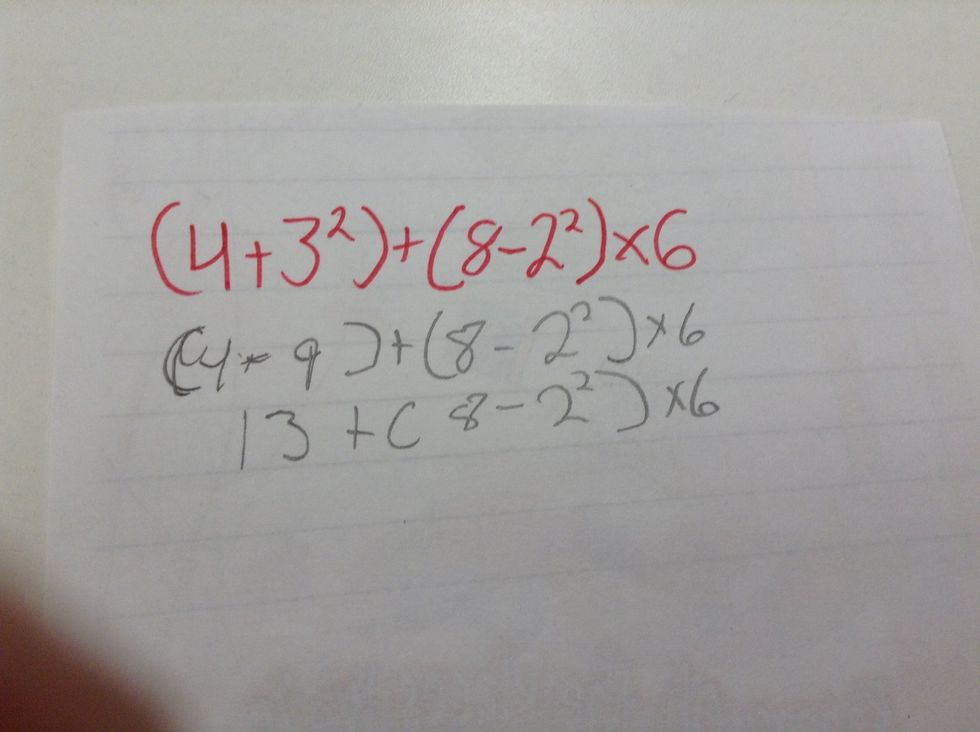 (4+3²)+(8-2²)×6
(4+9)+(8-2²)×6
13+(8-2²)×6